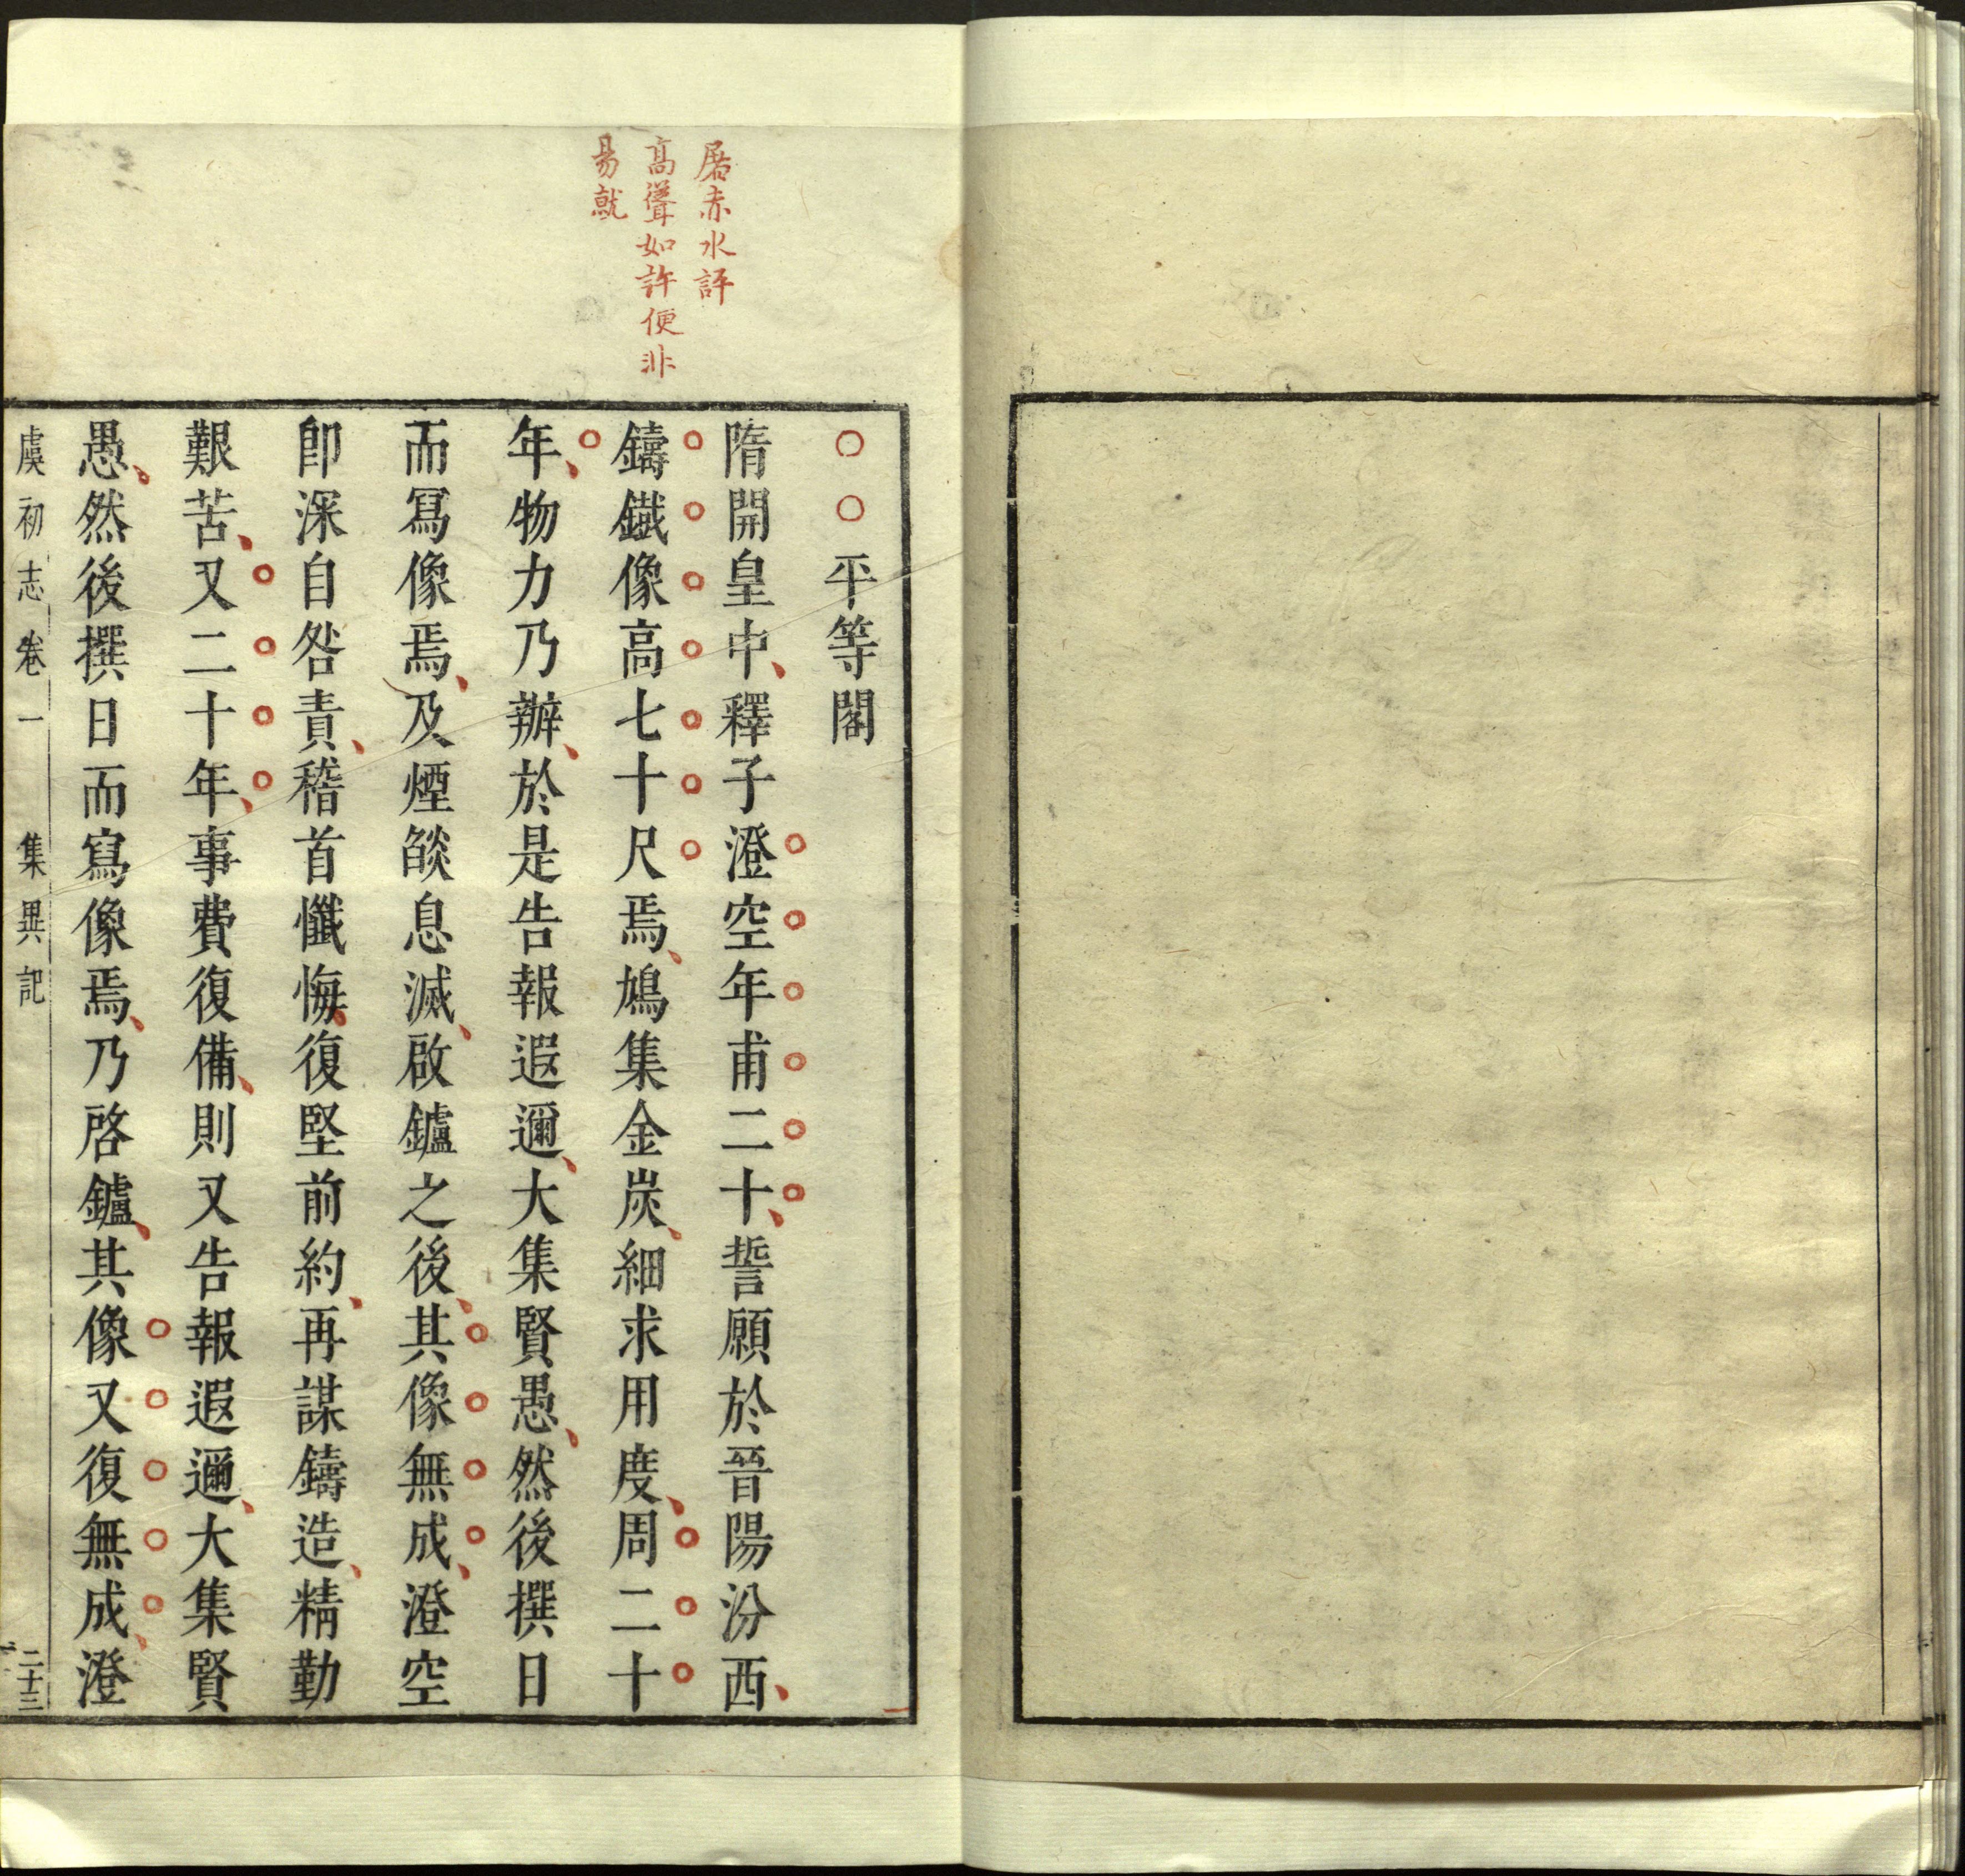 屠赤水評
高聳如許便非
易就
○○平等閣
隋開皇中釋子澄空年甫二十誓願於晉陽汾西
鑄鐵像高七十尺焉鳩集金炭細求用度周二十
年物力乃辦於是告報遐邇大集賢愚然後撰日
而冩像焉及煙燄息滅啟鑪之後其像無成澄空
即深自咎責稽首懺悔復堅前約再謀鑄造精勤
艱苦又二十年事費復備則又告報遐邇大集賢
愚然後撰日而寫像焉乃啓鑪其像又復無成澄
虞初志卷一 集異記 二十三